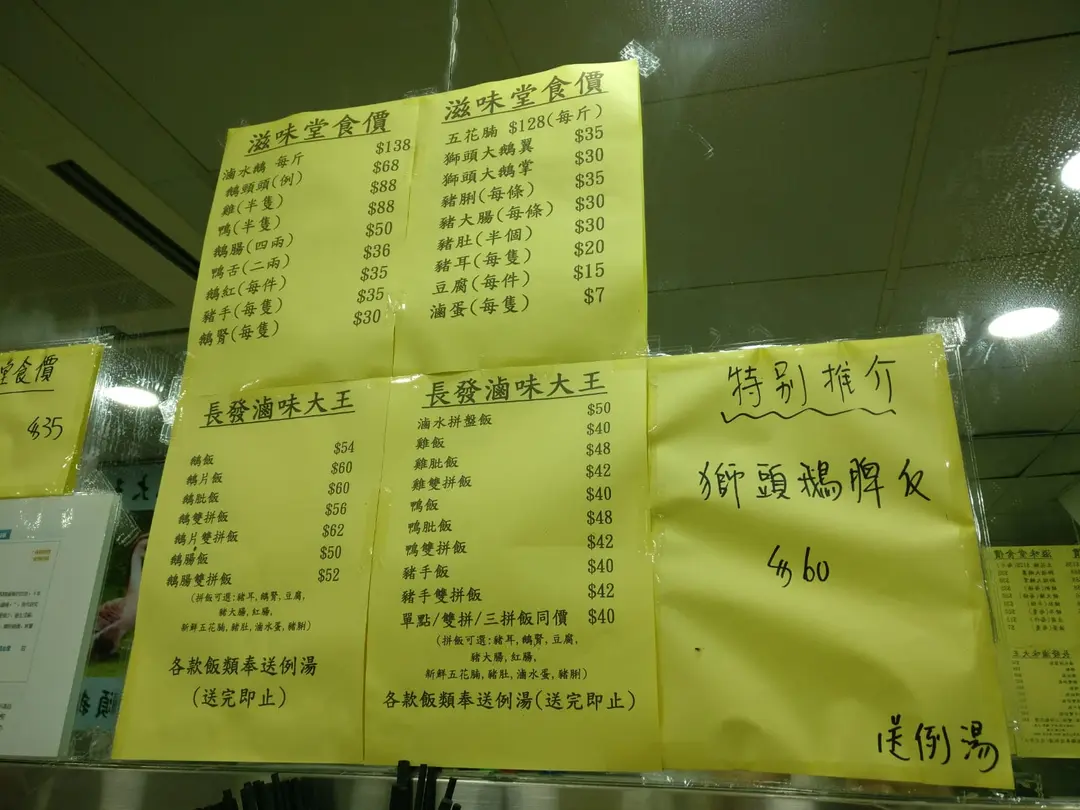 滋味堂食價
滷水鵝 每斤 $138
鵝頸頭(例) $68
雞(半隻) $88
鴨(半隻) $88
鵝腸(四兩) $50
鴨舌(二兩) $36
鵝紅(每件) $35
豬手(每隻) $35
鵝腎(每隻) $30
滋味堂食價
五花腩 $128(每斤)
獅頭大鵝翼 $35
獅頭大鵝掌 $30
豬脷(每條) $35
豬大腸(每條) $30
豬肚(半個) $30
豬耳(每隻) $20
豆腐(每件) $15
滷蛋(每隻) $7
堂食價
$35
長發滷味大王
鵝飯 $54
鵝片飯 $60
鵝髀飯 $60
鵝雙拼飯 $56
鵝片雙拼飯 $62
鵝腸飯 $50
鵝腸雙拼飯 $52
(拼飯可選:豬耳,鵝腎,豆腐,
豬大腸,紅腸,
新鮮五花腩,豬肚,滷水蛋,豬脷)
各款飯類奉送例湯
(送完即止)
長發滷味大王
滷水拼盤飯 $50
雞飯 $40
雞肶飯 $48
雞雙拼飯 $42
鴨飯 $40
鴨肶飯 $48
鴨雙拼飯 $42
豬手飯 $40
豬手雙拼飯 $42
單點/雙拼/三拼飯同價 $40
(拼飯可選:豬耳,鵝腎,豆腐,
豬大腸,紅腸,
新鮮五花腩,豬肚,滷水蛋,豬脷)
各款飯類奉送例湯(送完即止)
特別推介
獅頭鵝髀反
$60
送例湯